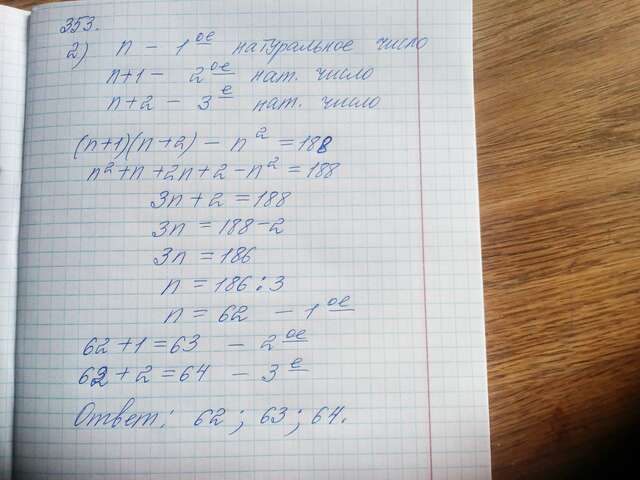 353.
2) n - 1ое натуральное число
n+1 - 2ое нат. число
n+2 - 3е нат. число
(n+1)(n+2) - n² = 188
n²+n+2n+2-n² = 188
3n+2 = 188
3n = 188-2
3n = 186
n = 186:3
n = 62 - 1ое
62+1=63 - 2ое
62+2=64 - 3е
Ответ: 62; 63; 64.